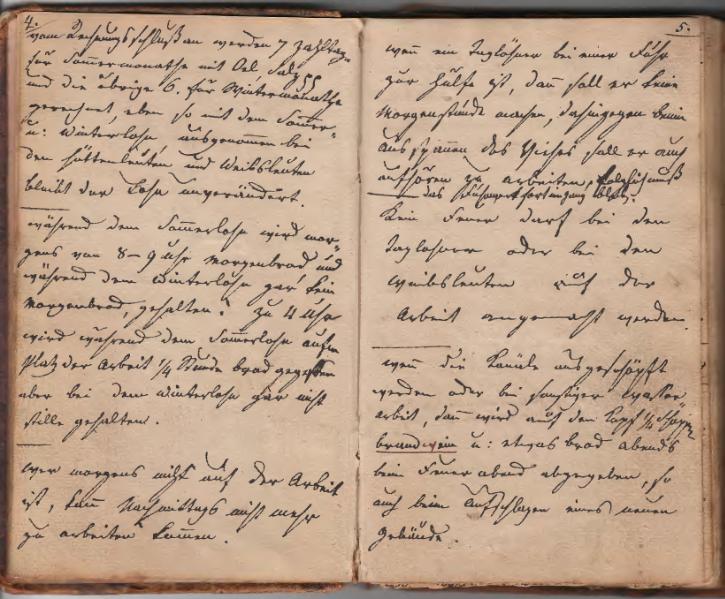 4.
vom Rechnungsschluß an werden 7 Zahltage
für Sommermonathe mit Oel, Salz
und die übrige 6. für Wintermonathe
gerechnet, eben so mit dem Sommer-
u: Winterlohn, ausgenommen bei
den Hüttenleuten und Weibsleuten
bleibt der Lohn unverändert.
während dem Sommerlohn wird mor-
gens von 8-9 Uhr Morgenbrod und
während dem Winterlohn gar kein
Morgenbrod, gehalten. Zu 4 Uhr
wird während dem Sommerlohn auf'm
Platz der Arbeit 1/4 Stunde brod gegessen
aber bei dem Winterlohn gar nicht
stille gehalten.
wer morgens nicht auf der Arbeit
ist, kann Nachmittags nicht mehr
zu arbeiten kommen.
5.
wenn ein Taglöhner bei einer Fuhr
zur Hülfe ist, dann soll er keine
Morgenstunde machen, dahingegen beim
Ausspannen des Viehes soll er auch
aufhören zu arbeiten, folglich muß
das Fuhrwerk
Kein Feuer darf bei den
Taglöhner oder bei den
Weibsleuten auf der
Arbeit angemacht werden.
wenn die Kanäle ausgeschöpft
werden oder bei sonstiger Wasser-
arbeit, dann wird auf den Kopf 1/4 Schoppen
brandwein u: etwas brod abends
beim Feuerabend abgegeben, so
auch beim Aufschlagen eines neuen
Gebäude.